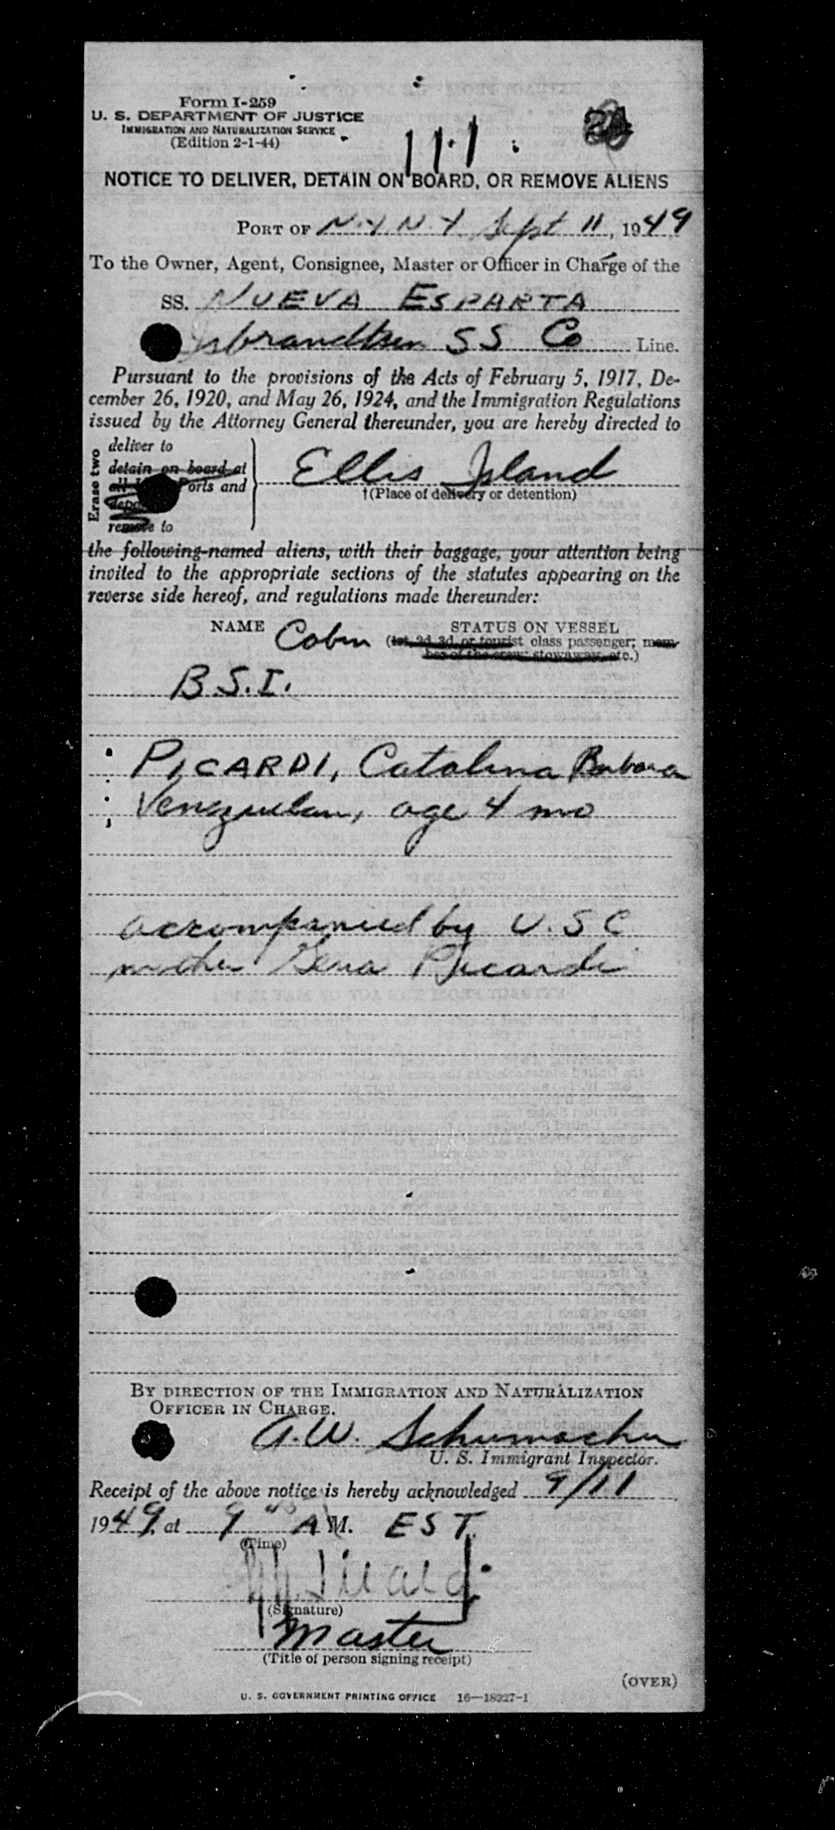 Form I-259
U. S. DEPARTMENT OF JUSTICE
IMMIGRATION AND NATURALIZATION SERVICE
(Edition 2-1-44)
111
NOTICE TO DELIVER, DETAIN ON BOARD, OR REMOVE ALIENS
PORT OF N.Y N.Y Sept 11, 1949
To the Owner, Agent, Consignee, Master or Officer in Charge of the
SS. NUEVA ESPARTA
Isbrandtsen SS Co Line.
Pursuant to the provisions of the Acts of February 5, 1917, De-
cember 26, 1920, and May 26, 1924, and the Immigration Regulations
issued by the Attorney General thereunder, you are hereby directed to
Erase two
deliver to
detain on board at
all Ports and
remove to
Ellis Island
†(Place of delivery or detention)
the following-named aliens, with their baggage, your attention being
invited to the appropriate sections of the statutes appearing on the
reverse side hereof, and regulations made thereunder:
NAME Cabin STATUS ON VESSEL
(1st, 2d, 3d, or tourist class passenger; mem-
ber of the crew; stowaway, etc.)
B.S.I.
PICARDI, Catalina Barbara
Venezuelan, age 4 mo
accompanied by U.S C
mother Gena Picardi
BY DIRECTION OF THE IMMIGRATION AND NATURALIZATION
OFFICER IN CHARGE.
A.W. Schumacher
U. S. Immigrant Inspector.
Receipt of the above notice is hereby acknowledged 9/11
1949, at 9 A M. EST
(Time)
(Signature)
Master
(Title of person signing receipt)
(OVER)
U. S. GOVERNMENT PRINTING OFFICE 16—18327-1